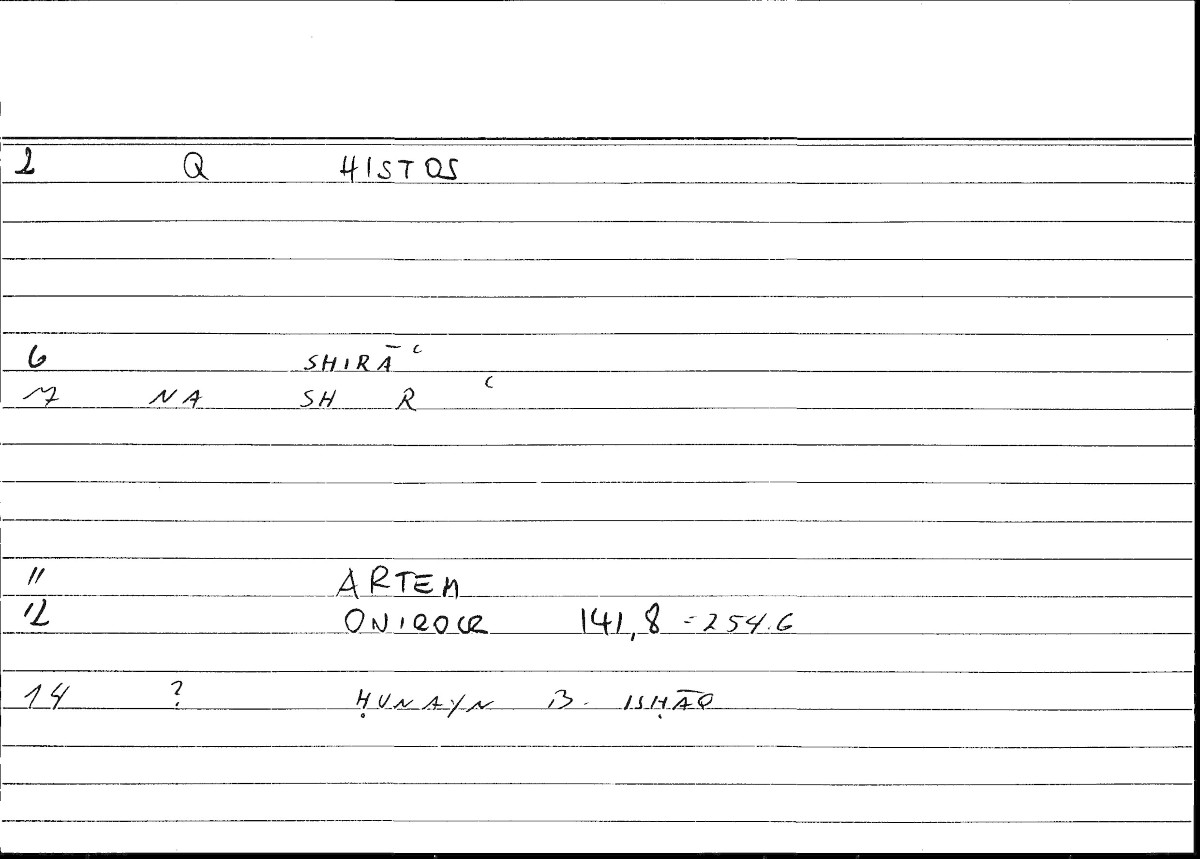 2 Q HISTOS
6 SHIRĀʿ
7 NA SH R ʿ
11 ARTEM
12 ONIROCR 141,8 = 254.6
14 ? ḤUNAYN B. ISḤĀQ